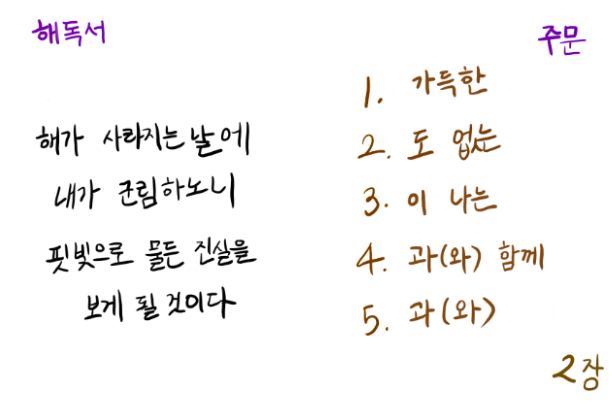 해독서
주문
해가 사라지는 날에
내가 군림하노니
핏빛으로 물든 진실을
보게 될 것이다
1. 가득한
2. 도 없는
3. 이 나는
4. 과(와) 함께
5. 과(와)
2장